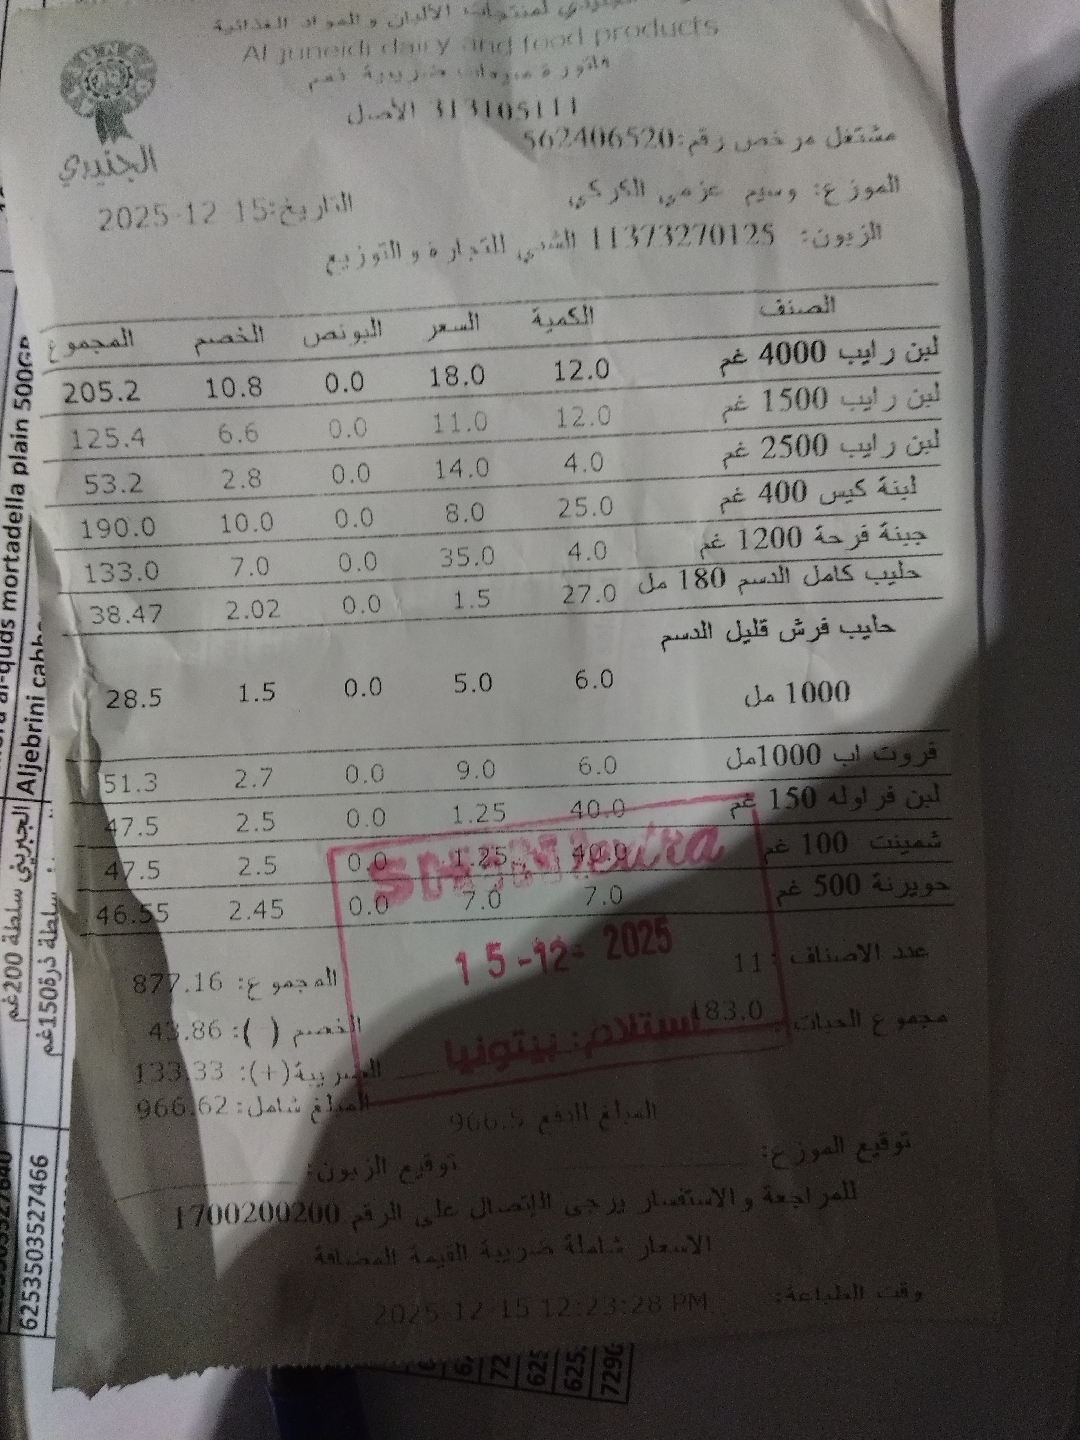 الجنيدي لمنتجات الألبان و المواد الغذائية
Al juneidi dairy and food products
فاتورة مبيعات ضريبية
313105111 الأصل
مشتغل مرخص رقم:562406520
الجنيدي
الموزع: وسيم عزمي الكركي
التاريخ:15 12-2025
الزبون: 11373270125 الشني للتجارة و التوزيع
الصنف الكمية السعر البونص الخصم المجموع
لبن رايب 4000 غم 12.0 18.0 0.0 10.8 205.2
لبن رايب 1500 غم 12.0 11.0 0.0 6.6 125.4
لبن رايب 2500 غم 4.0 14.0 0.0 2.8 53.2
لبنة كيس 400 غم 25.0 8.0 0.0 10.0 190.0
جبنة فرحة 1200 غم 4.0 35.0 0.0 7.0 133.0
حليب كامل الدسم 180 مل 27.0 1.5 0.0 2.02 38.47
حليب فرش قليل الدسم
1000 مل 6.0 5.0 0.0 1.5 28.5
فروت اب 1000مل 6.0 9.0 0.0 2.7 51.3
لبن فراوله 150 غم 40.0 1.25 0.0 2.5 47.5
شمينت 100 غم 40.0 1.25 0.0 2.5 47.5
حويرنة 500 غم 7.0 7.0 0.0 2.45 46.55
extra
15-12-2025
استلام: بيتونيا
عدد الاصناف: 11
المجموع: 877.16
مجموع الحبات: 183.0
الخصم ( ): 43.86
الضريبة(+): 133.33
المبلغ شامل: 966.62
المبلغ للدفع 966.5
توقيع الموزع:
توقيع الزبون:
للمراجعة و الاستفسار يرجى الإتصال على الرقم 1700200200
الاسعار شاملة ضريبة القيمة المضافة
وقت الطباعة: 2025-12-15 12:23:28 PM
al-quds mortadella plain 500GR
Aljebrini cabba
الجبريني سلطة 200غم
سلطة ذرة150غم
6253503527466